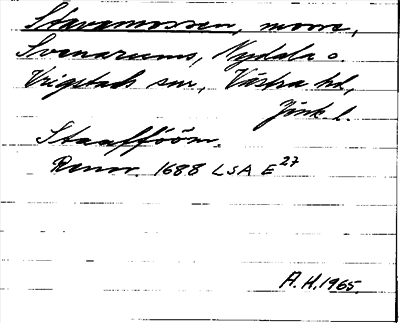 Stavamossen, mosse,
Svenarums, Nydala o.
Vrigstads snr, Västra hd,
Jönk. l.
Staaffööm.
Renov. 1688 LSA E27
A.H. 1965.